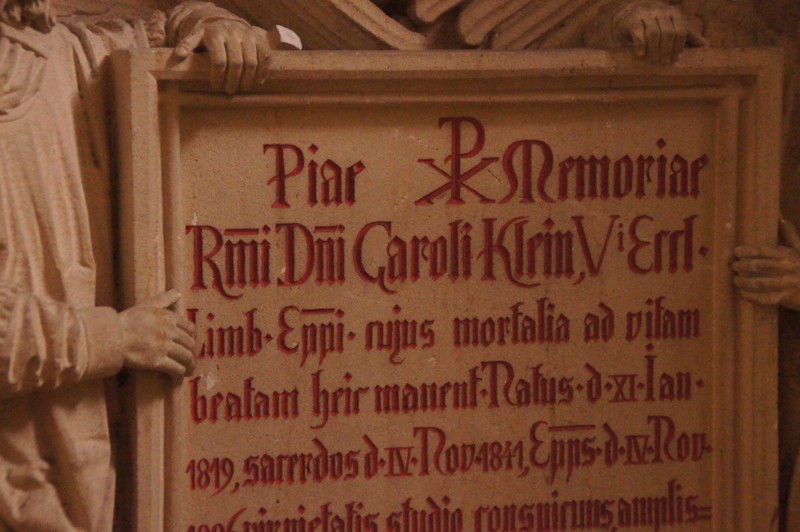 Piae ☧ Memoriae
Rm̄i Dn̄i Caroli Klein, Vi Eccl.
Limb. Ep̄p̄i. cujus mortalia ad vitam
beatam heic manent. Natus. d. XI. Ian.
1819, sacerdos d. IV. Nov. 1841, Ep̄p̄s. d. IV. Nov.
vir pietatis studio conspicuus, amplis=